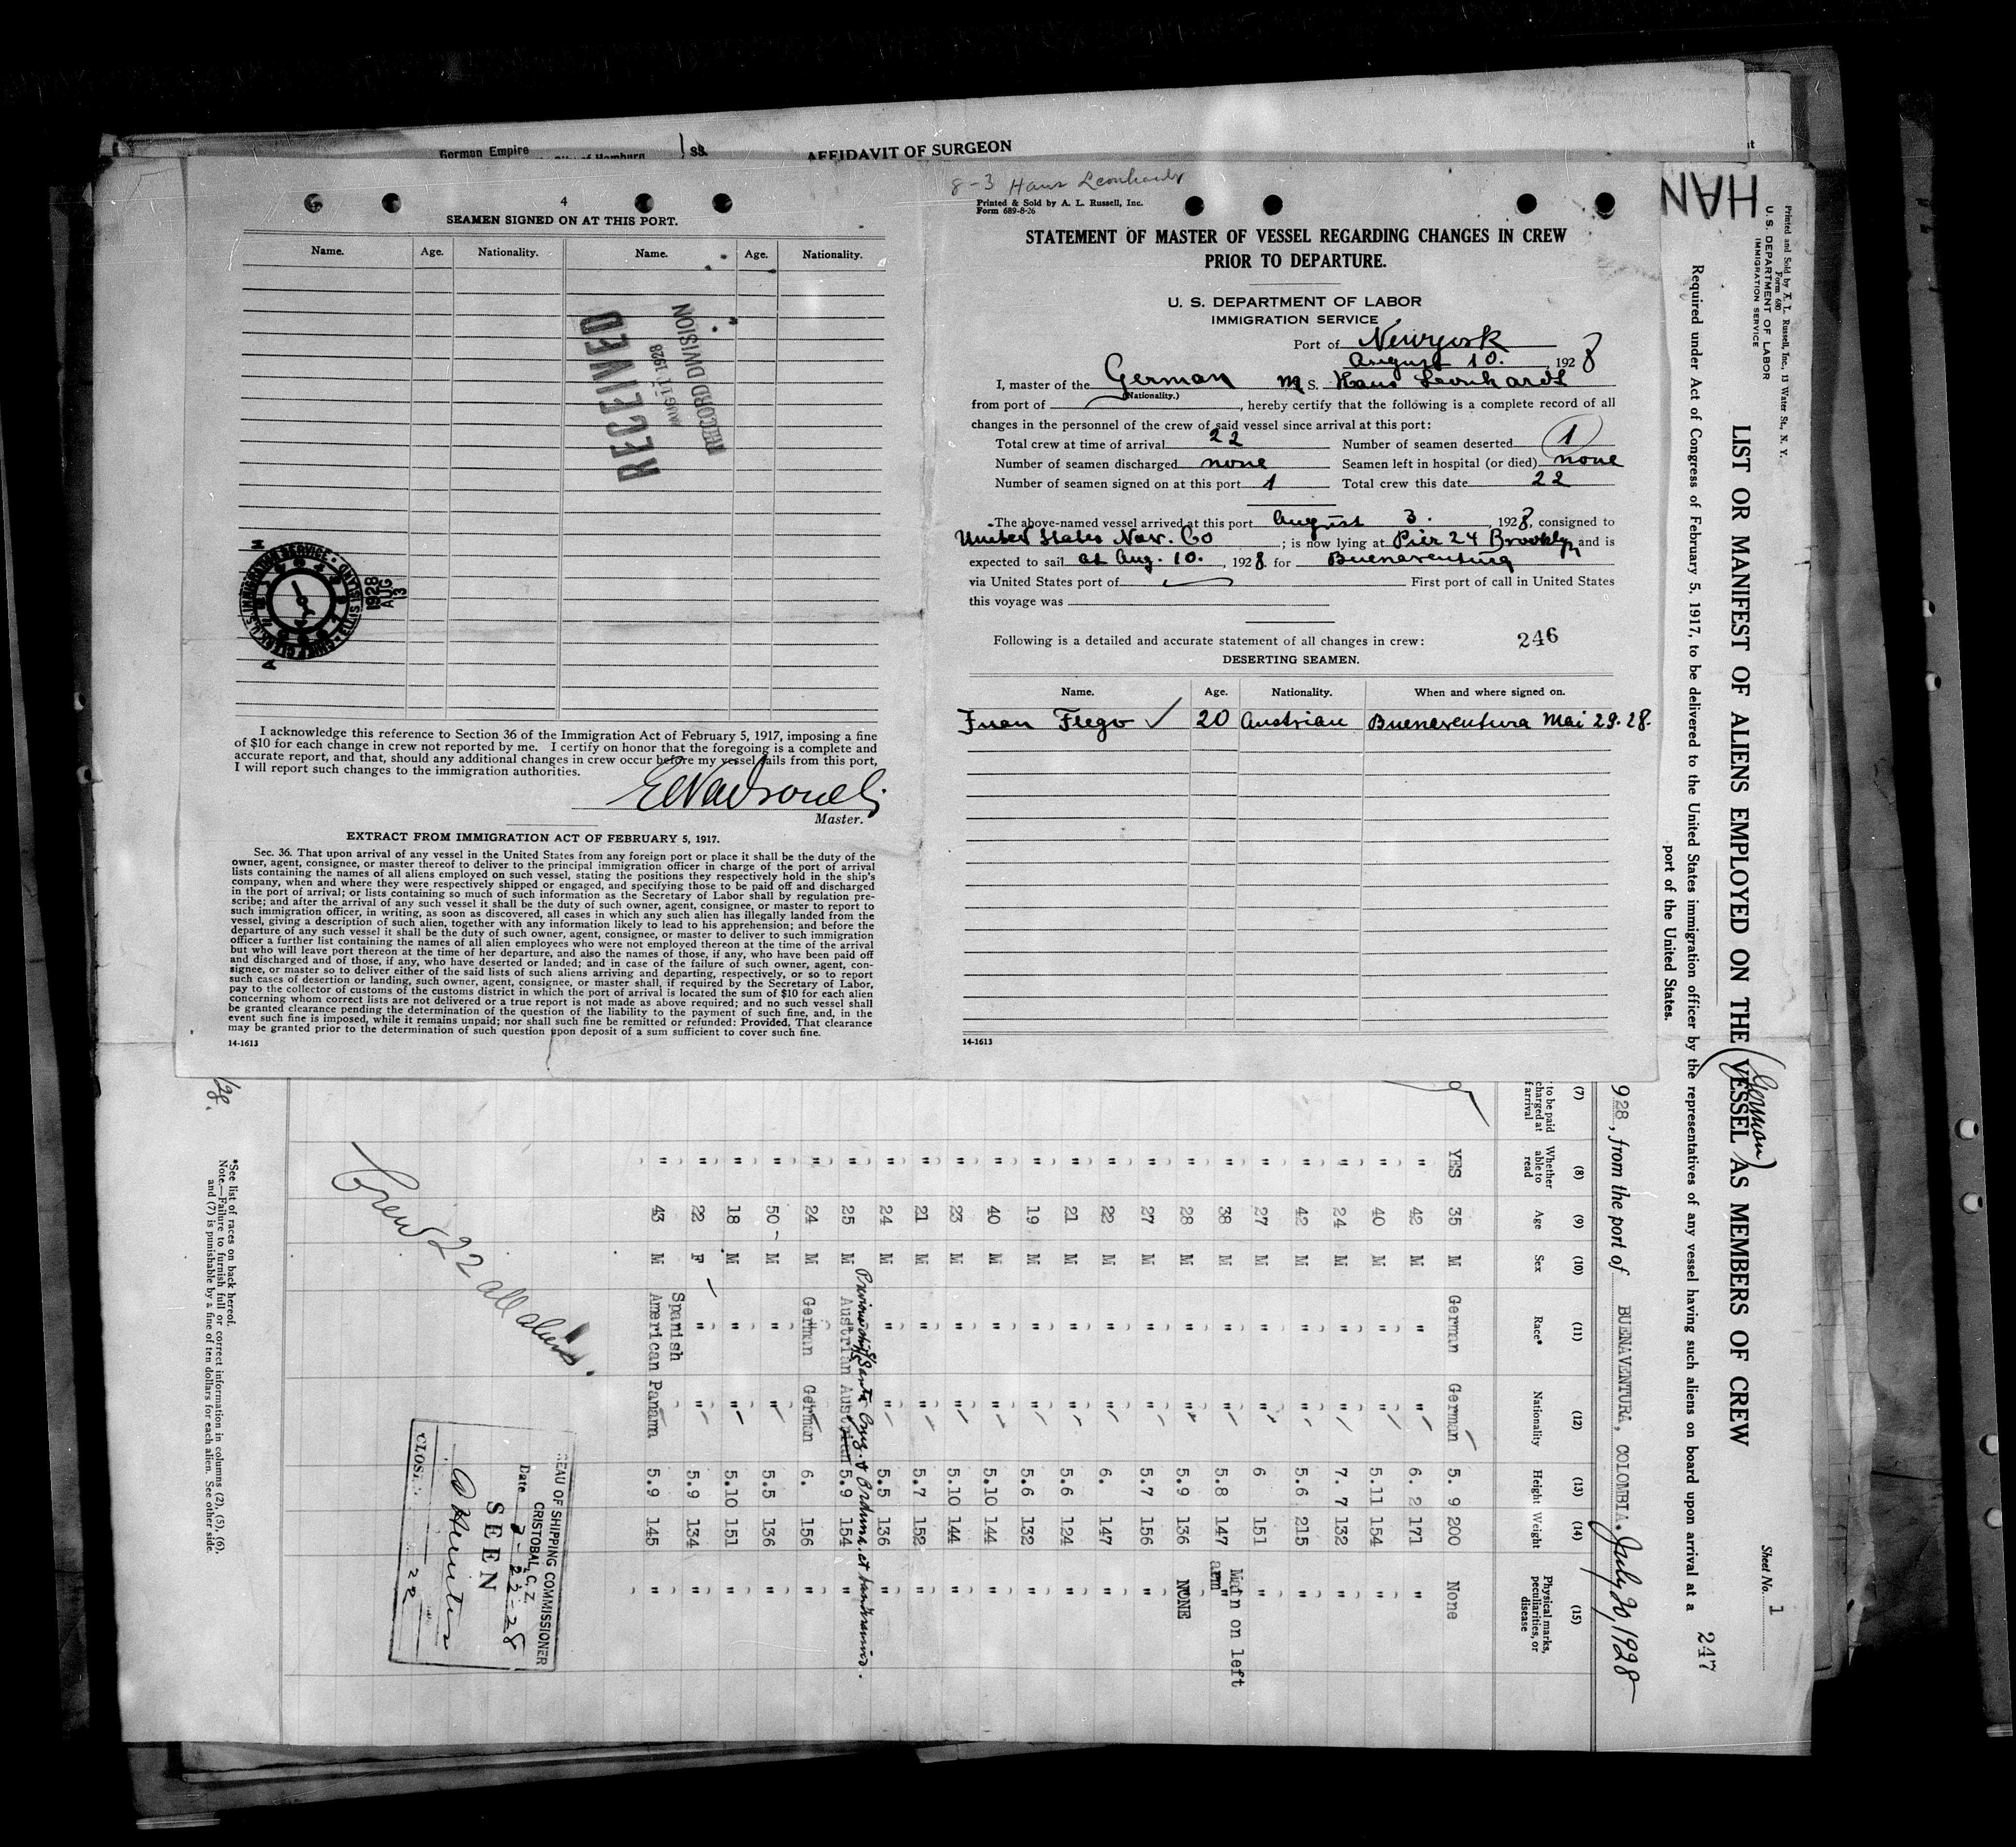 German Empire
AFFIDAVIT OF SURGEON
ss.
4
SEAMEN SIGNED ON AT THIS PORT.
Name. Age. Nationality. Name. Age. Nationality.
RECEIVED
AUG 11 1928
RECORD DIVISION
1928
AUG
13
I acknowledge this reference to Section 36 of the Immigration Act of February 5, 1917, imposing a fine
of $10 for each change in crew not reported by me. I certify on honor that the foregoing is a complete and
accurate report, and that, should any additional changes in crew occur before my vessel sails from this port,
I will report such changes to the immigration authorities.
Master.
EXTRACT FROM IMMIGRATION ACT OF FEBRUARY 5, 1917.
Sec. 36. That upon arrival of any vessel in the United States from any foreign port or place it shall be the duty of the
owner, agent, consignee, or master thereof to deliver to the principal immigration officer in charge of the port of arrival
lists containing the names of all aliens employed on such vessel, stating the positions they respectively hold in the ship's
company, when and where they were respectively shipped or engaged, and specifying those to be paid off and discharged
in the port of arrival; or lists containing so much of such information as the Secretary of Labor shall by regulation pre-
scribe; and after the arrival of any such vessel it shall be the duty of such owner, agent, consignee, or master to report to
such immigration officer, in writing, as soon as discovered, all cases in which any such alien has illegally landed from the
vessel, giving a description of such alien, together with any information likely to lead to his apprehension; and before the
departure of any such vessel it shall be the duty of such owner, agent, consignee, or master to deliver to such immigration
officer a further list containing the names of all alien employees who were not employed thereon at the time of the arrival
but who will leave port thereon at the time of her departure, and also the names of those, if any, who have been paid off
and discharged and of those, if any, who have deserted or landed; and in case of the failure of such owner, agent, con-
signee, or master so to deliver either of the said lists of such aliens arriving and departing, respectively, or so to report
such cases of desertion or landing, such owner, agent, consignee, or master shall, if required by the Secretary of Labor,
pay to the collector of customs of the customs district in which the port of arrival is located the sum of $10 for each alien
concerning whom correct lists are not delivered or a true report is not made as above required; and no such vessel shall
be granted clearance pending the determination of the question of the liability to the payment of such fine, and, in the
event such fine is imposed, while it remains unpaid; nor shall such fine be remitted or refunded: Provided, That clearance
may be granted prior to the determination of such question upon deposit of a sum sufficient to cover such fine.
14-1613
8-3 Hans Leonhardt
Printed & Sold by A. L. Russell, Inc.
Form 689-8-26
STATEMENT OF MASTER OF VESSEL REGARDING CHANGES IN CREW
PRIOR TO DEPARTURE.
U. S. DEPARTMENT OF LABOR
IMMIGRATION SERVICE
Port of Newyork
August 10. , 1928
I, master of the German M S. Hans Leonhardt
(Nationality.)
from port of , hereby certify that the following is a complete record of all
changes in the personnel of the crew of said vessel since arrival at this port:
Total crew at time of arrival 22 Number of seamen deserted 1
Number of seamen discharged none Seamen left in hospital (or died) none
Number of seamen signed on at this port 1 Total crew this date 22
The above-named vessel arrived at this port August 3. , 1928, consigned to
United States Nav. Co ; is now lying at Pier 24 Brooklyn and is
expected to sail at Aug. 10. , 1928 for Buenaventura
via United States port of First port of call in United States
this voyage was
Following is a detailed and accurate statement of all changes in crew: 246
DESERTING SEAMEN.
Name. Age. Nationality. When and where signed on.
Juan Flego ✓ 20 Austrian Buenaventura Mai 29. 28.
14-1613
HAN
Printed and Sold by A. L. Russell, Inc., 13 Water St., N. Y.
Form 680
U. S. DEPARTMENT OF LABOR
IMMIGRATION SERVICE
Sheet No. 1
LIST OR MANIFEST OF ALIENS EMPLOYED ON THE (German) VESSEL AS MEMBERS OF CREW
247
Required under Act of Congress of February 5, 1917, to be delivered to the United States immigration officer by the representatives of any vessel having such aliens on board upon arrival at a
port of the United States.
928, from the port of BUENAVENTURA, COLOMBIA. July 20, 1928
(7) (8) (9) (10) (11) (12) (13) (14) (15)
to be paid Whether able to read Age Sex Race* Nationality Height Weight Physical marks, peculiarities, or disease
charged at
arrival
YES 35 M German German 5. 9 200 None
" 42 M " " 6. 2 171 "
" 40 M " " 5.11 154 "
" 24 M " " 7. 7 132 "
" 42 M " " 5.6 215 "
" 27 M " " 6 151 "
" 38 M " " 5.8 147 on left arm
" 28 M " " 5.9 136 NONE
" 27 M " " 5.7 156 "
" 22 M " " 6. 147 "
" 21 M " " 5.6 124 "
" 19 M " " 5.6 132 "
" 40 M " " 5.10 144 "
" 23 M " " 5.10 144 "
" 21 M " " 5.7 152 "
" 24 M " " 5.5 136 "
" 25 M Austrian Austrian 5.9 154 "
" 24 M German German 6. 156 "
" 50 M " " 5.5 136 "
" 18 M " " 5.10 151 "
" 22 F " " 5.9 134 "
" 43 M Spanish American Panam 5.9 145 "
Crew 22 all aliens.
EAU OF SHIPPING COMMISSIONER
CRISTOBAL, C. Z.
Date 7-23-28
SEEN
22
*See list of races on back hereof.
Note.—Failure to furnish full or correct information in columns (2), (5), (6),
and (7) is punishable by a fine of ten dollars for each alien. See other side.
/28.